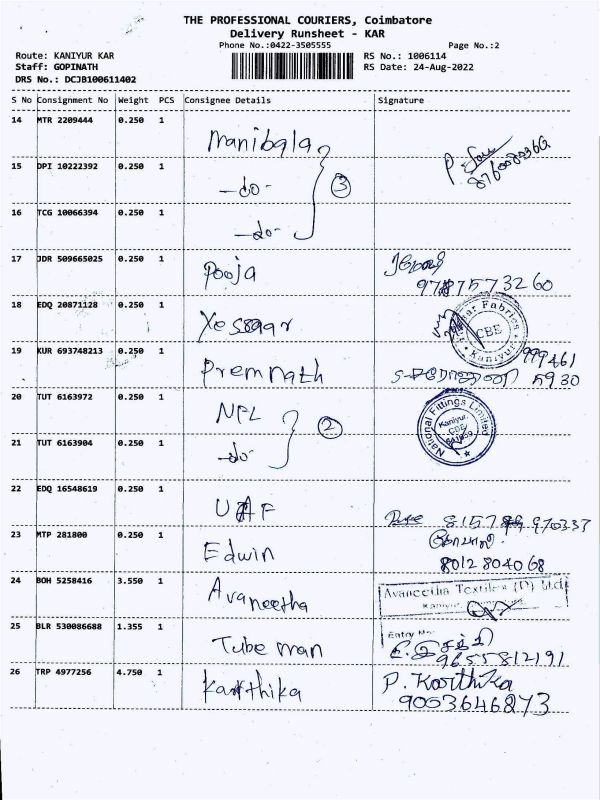 THE PROFESSIONAL COURIERS, Coimbatore
Delivery Runsheet - KAR
Phone No.:0422-3505555
Page No.:2
Route: KANIYUR KAR
RS No.: 1006114
Staff: GOPINATH
RS Date: 24-Aug-2022
DRS No.: DCJB100611402
S No Consignment No Weight PCS Consignee Details Signature
14 MTR 2209444 0.250 1 Manibala
15 DPI 10222392 0.250 1 -do- 3
16 TCG 10066394 0.250 1 -do-
17 JDR 509665025 0.250 1 Pooja
18 EDQ 20871128 0.250 1
Fabrics CBE Kaniyur
19 KUR 693748213 0.250 1 Premnath 999461
5930
20 TUT 6163972 0.250 1 NFL 2
National Fittings Limited
Kaniyur,
CBE
21 TUT 6163904 0.250 1 -do-
22 EDQ 16548619 0.250 1
23 MTP 281800 0.250 1 Edwin
8012804068
24 BOH 5258416 3.550 1 Avaneetha
Avaneetha Textiles (P) Ltd
25 BLR 530086688 1.355 1 Tube man
Entry No:
9655812191
26 TRP 4977256 4.750 1 Karthika P. Karthika
9003646873